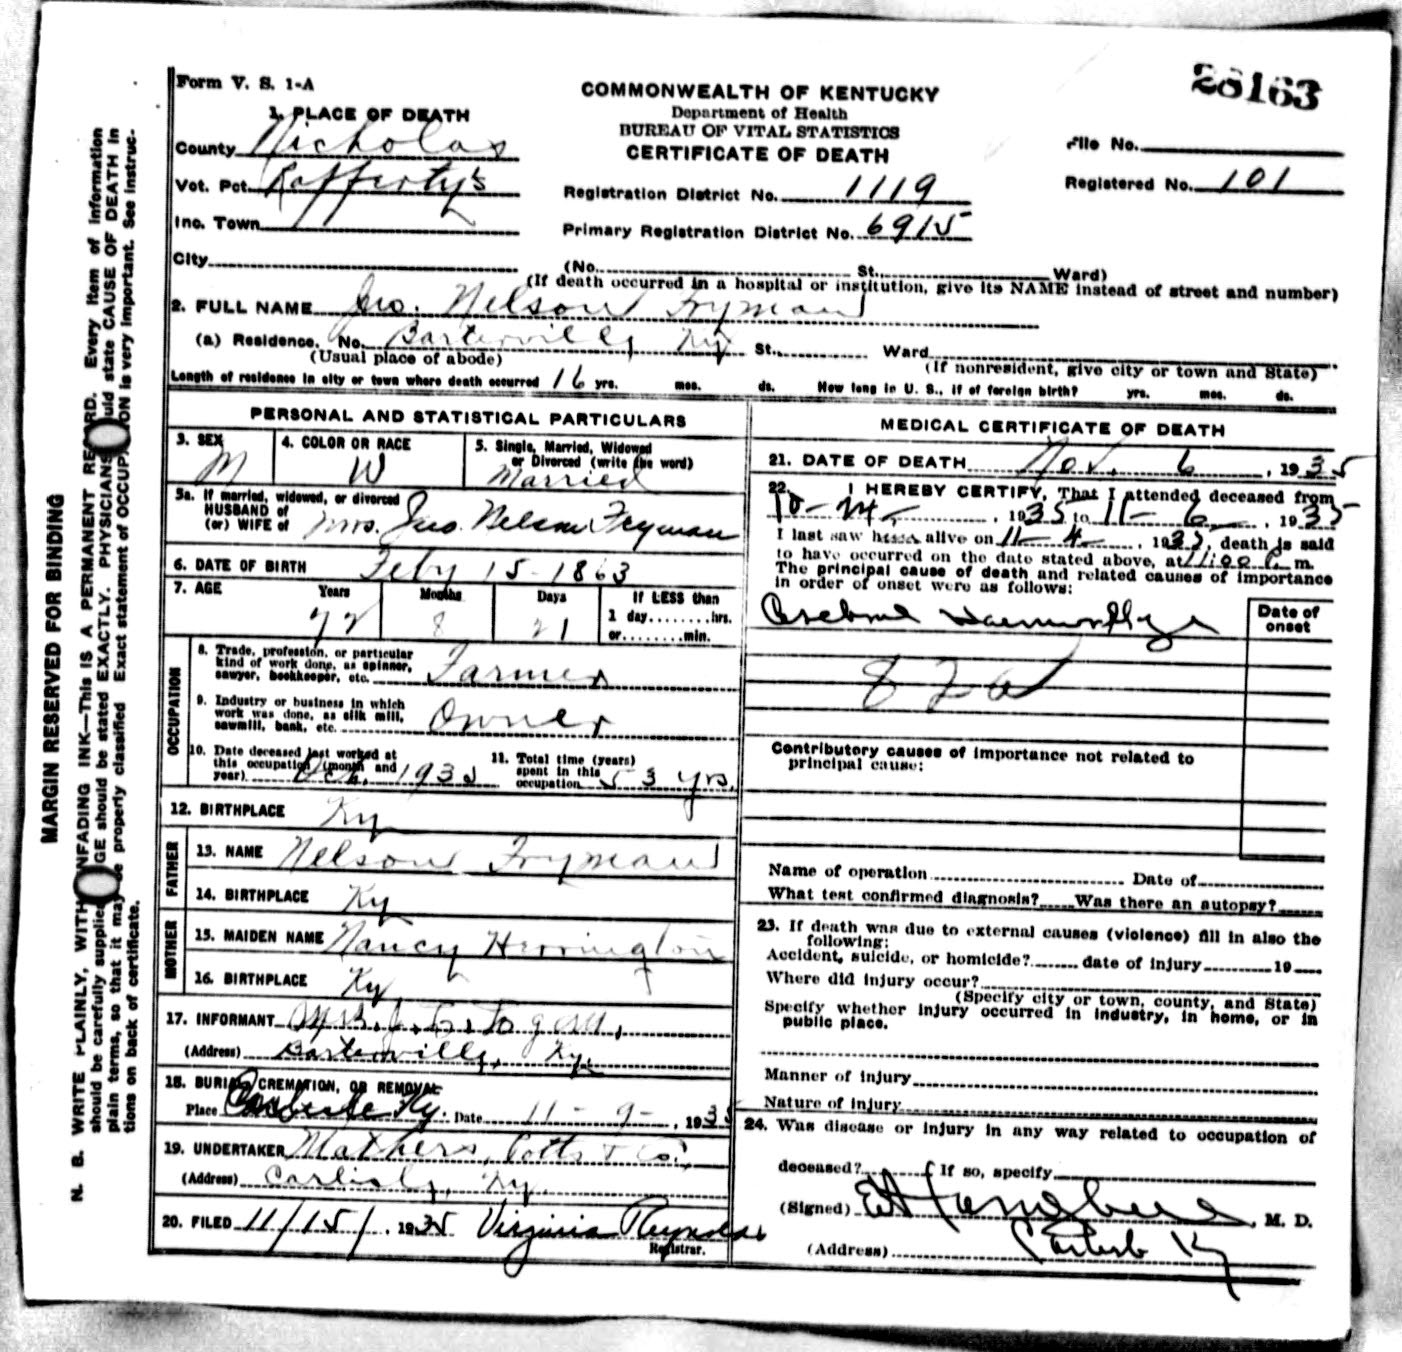 Form V. S. 1-A
28163
1. PLACE OF DEATH
COMMONWEALTH OF KENTUCKY
Department of Health
BUREAU OF VITAL STATISTICS
CERTIFICATE OF DEATH
County Nicholas
File No.
Vot. Pct. Rafferty's
Registration District No. 1119
Registered No. 101
Inc. Town
Primary Registration District No. 6915
City
(No. St., Ward)
(If death occurred in a hospital or institution, give its NAME instead of street and number)
2. FULL NAME Jno. Nelson Fryman
(a) Residence. No. Barterville, Ky St., Ward
(Usual place of abode)
(If nonresident, give city or town and State)
Length of residence in city or town where death occurred 16 yrs. mos. ds. How long in U. S., if of foreign birth? yrs. mos. ds.
PERSONAL AND STATISTICAL PARTICULARS
3. SEX M
4. COLOR OR RACE W
5. Single, Married, Widowed
or Divorced (write the word)
Married
5a. If married, widowed, or divorced
HUSBAND of
(or) WIFE of Mrs. Jno. Nelson Fryman
6. DATE OF BIRTH Feby 15-1863
7. AGE Years Months Days If LESS than
72 8 21 1 day........hrs.
or........min.
OCCUPATION
8. Trade, profession, or particular
kind of work done, as spinner,
sawyer, bookkeeper, etc. Farmer
9. Industry or business in which
work was done, as silk mill,
sawmill, bank, etc. Owner
10. Date deceased last worked at
this occupation (month and
year) Oct. 1935
11. Total time (years)
spent in this
occupation 53 yrs.
12. BIRTHPLACE Ky
FATHER
13. NAME Nelson Fryman
14. BIRTHPLACE Ky
MOTHER
15. MAIDEN NAME Nancy Herrington
16. BIRTHPLACE Ky
17. INFORMANT Mrs. J.
(Address) Barterville, Ky.
18. BURIAL, CREMATION, OR REMOVAL
Place Carlisle Ky. Date 11-9-, 1935
19. UNDERTAKER Mathers, Potts & Co.,
(Address) Carlisle, Ky.
20. FILED 11/15/, 1935 Virginia Reynolds
Registrar.
MEDICAL CERTIFICATE OF DEATH
21. DATE OF DEATH Nov. 6, 1935
22. I HEREBY CERTIFY, That I attended deceased from
10-14-, 1935 to 11-6, 1935
I last saw alive on 11-4-, 1935, death is said
to have occurred on the date stated above, at 11:00 P. m.
The principal cause of death and related causes of importance
in order of onset were as follows:
Date of
onset
Cerebral Haemorrhage
82a
Contributory causes of importance not related to
principal cause:
Name of operation Date of
What test confirmed diagnosis? Was there an autopsy?
23. If death was due to external causes (violence) fill in also the
following:
Accident, suicide, or homicide? date of injury 19
Where did injury occur?
(Specify city or town, county, and State)
Specify whether injury occurred in industry, in home, or in
public place.
Manner of injury
Nature of injury
24. Was disease or injury in any way related to occupation of
deceased? If so, specify
(Signed) , M. D.
(Address) Carlisle Ky
MARGIN RESERVED FOR BINDING
N. B. WRITE PLAINLY, WITH UNFADING INK—This is A PERMANENT RECORD. Every item of information
should be carefully supplied. AGE should be stated EXACTLY. PHYSICIANS should state CAUSE OF DEATH in
plain terms, so that it may be properly classified. Exact statement of OCCUPATION is very important. See instruc-
tions on back of certificate.